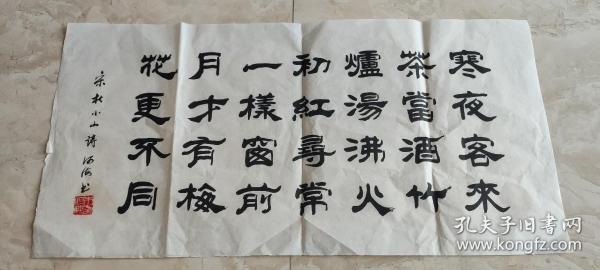 寒夜客來
茶當酒竹
爐湯沸火
初紅尋常
一樣窗前
月才有梅
花更不同
宋杜小山詩 河海书
孔夫子旧书网
www.kongfz.com